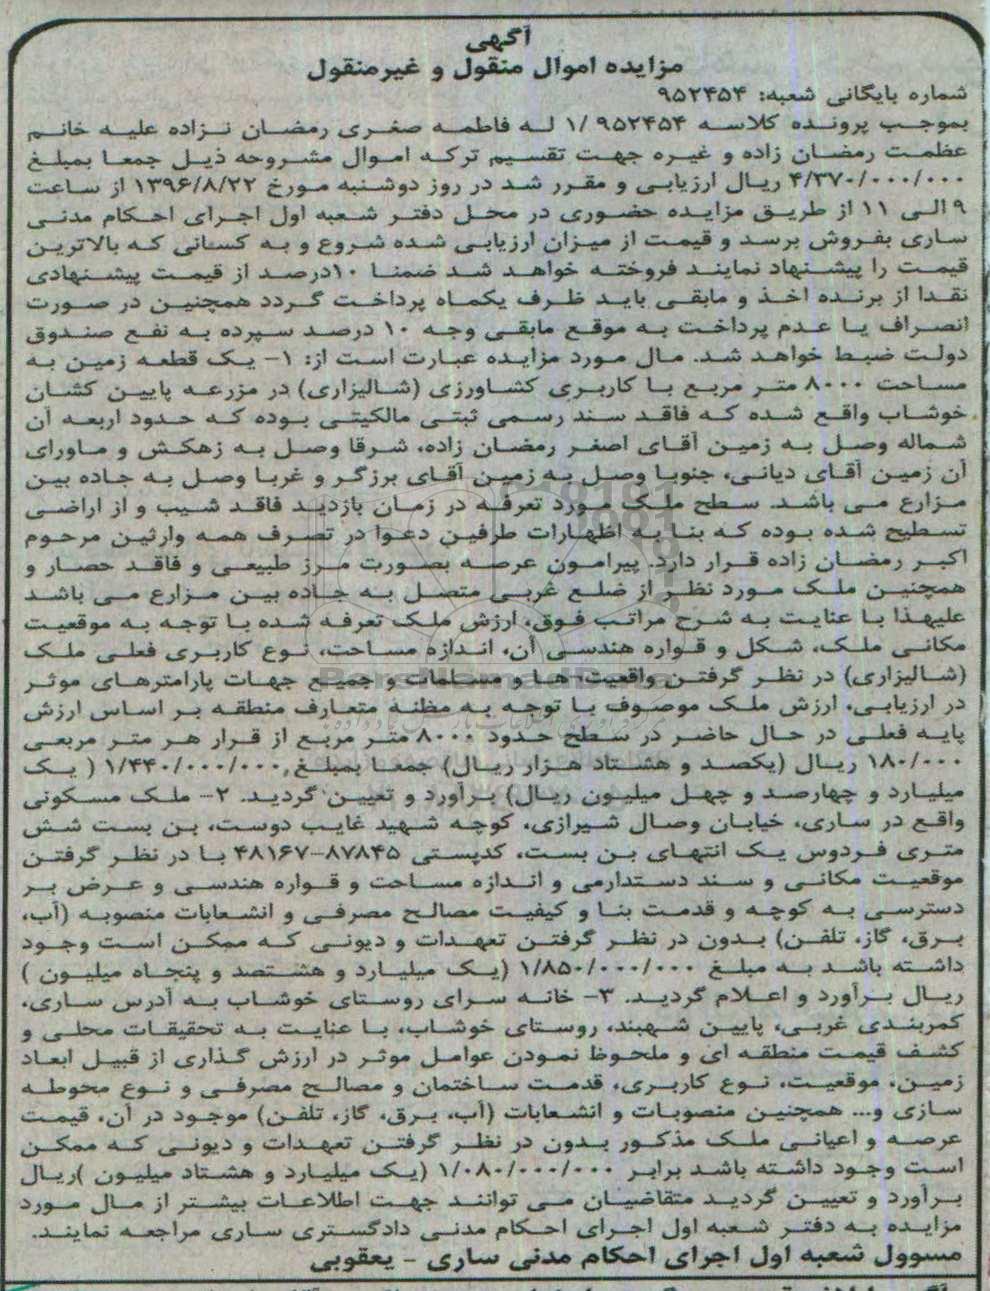 آگهی
مزایده اموال منقول و غیرمنقول
شماره بایگانی شعبه: ۹۵۲۴۵۴
بموجب پرونده کلاسه ۹۵۲۴۵۴ /۱ له فاطمه صغری رمضان نزاده علیه خانم
عظمت رمضان زاده و غیره جهت تقسیم ترکه اموال مشروحه ذیل جمعا بمبلغ
۴/۳۷۰/۰۰۰/۰۰۰ ریال ارزیابی و مقرر شد در روز دوشنبه مورخ ۱۳۹۶/۸/۲۲ از ساعت
۹ الی ۱۱ از طریق مزایده حضوری در محل دفتر شعبه اول اجرای احکام مدنی
ساری بفروش برسد و قیمت از میزان ارزیابی شده شروع و به کسانی که بالاترین
قیمت را پیشنهاد نمایند فروخته خواهد شد ضمنا ۱۰درصد از قیمت پیشنهادی
نقدا از برنده اخذ و مابقی باید ظرف یکماه پرداخت گردد همچنین در صورت
انصراف یا عدم پرداخت به موقع مابقی وجه ۱۰ درصد سپرده به نفع صندوق
دولت ضبط خواهد شد. مال مورد مزایده عبارت است از: ۱- یک قطعه زمین به
مساحت ۸۰۰۰ متر مربع با کاربری کشاورزی (شالیزاری) در مزرعه پایین کشان
خوشاب واقع شده که فاقد سند رسمی ثبتی مالکیتی بوده که حدود اربعه آن
شماله وصل به زمین آقای اصغر رمضان زاده، شرقا وصل به زهکش و ماورای
آن زمین آقای دیانی، جنوبا وصل به زمین آقای برزگر و غربا وصل به جاده بین
مزارع می باشد. سطح ملک مورد تعرفه در زمان بازدید فاقد شیب و از اراضی
تسطیح شده بوده که بنا به اظهارات طرفین دعوا در تصرف همه وارثین مرحوم
اکبر رمضان زاده قرار دارد. پیرامون عرصه بصورت مرز طبیعی و فاقد حصار و
همچنین ملک مورد نظر از ضلع غربی متصل به جاده بین مزارع می باشد
علیهذا با عنایت به شرح مراتب فوق، ارزش ملک تعرفه شده با توجه به موقعیت
مکانی ملک، شکل و قواره هندسی آن، اندازه مساحت، نوع کاربری فعلی ملک
(شالیزاری) در نظر گرفتن واقعیت ها و مسلمات و جمیع جهات پارامترهای موثر
در ارزیابی، ارزش ملک موصوف با توجه به مظنه متعارف منطقه بر اساس ارزش
پایه فعلی در حال حاضر در سطح حدود ۸۰۰۰ متر مربع از قرار هر متر مربعی
۱۸۰/۰۰۰ ریال (یکصد و هشتاد هزار ریال) جمعا بمبلغ ۱/۴۴۰/۰۰۰/۰۰۰ ( یک
میلیارد و چهارصد و چهل میلیون ریال) برآورد و تعیین گردید. ۲- ملک مسکونی
واقع در ساری، خیابان وصال شیرازی، کوچه شهید غایب دوست، بن بست شش
متری فردوس یک انتهای بن بست، کدپستی ۸۷۸۴۵-۴۸۱۶۷ با در نظر گرفتن
موقعیت مکانی و سند دستدارمی و اندازه مساحت و قواره هندسی و عرض بر
دسترسی به کوچه و قدمت بنا و کیفیت مصالح مصرفی و انشعابات منصوبه (آب،
برق، گاز، تلفن) بدون در نظر گرفتن تعهدات و دیونی که ممکن است وجود
داشته باشد به مبلغ ۱/۸۵۰/۰۰۰/۰۰۰ (یک میلیارد و هشتصد و پنجاه میلیون )
ریال برآورد و اعلام گردید. ۳- خانه سرای روستای خوشاب به آدرس ساری،
کمربندی غربی، پایین شهبند، روستای خوشاب، با عنایت به تحقیقات محلی و
کشف قیمت منطقه ای و ملحوظ نمودن عوامل موثر در ارزش گذاری از قبیل ابعاد
زمین، موقعیت، نوع کاربری، قدمت ساختمان و مصالح مصرفی و نوع محوطه
سازی و... همچنین منصوبات و انشعابات (آب، برق، گاز، تلفن) موجود در آن، قیمت
عرصه و اعیانی ملک مذکور بدون در نظر گرفتن تعهدات و دیونی که ممکن
است وجود داشته باشد برابر ۱/۰۸۰/۰۰۰/۰۰۰ (یک میلیارد و هشتاد میلیون )ریال
برآورد و تعیین گردید متقاضیان می توانند جهت اطلاعات بیشتر از مال مورد
مزایده به دفتر شعبه اول اجرای احکام مدنی دادگستری ساری مراجعه نمایند.
مسوول شعبه اول اجرای احکام مدنی ساری - یعقوبی